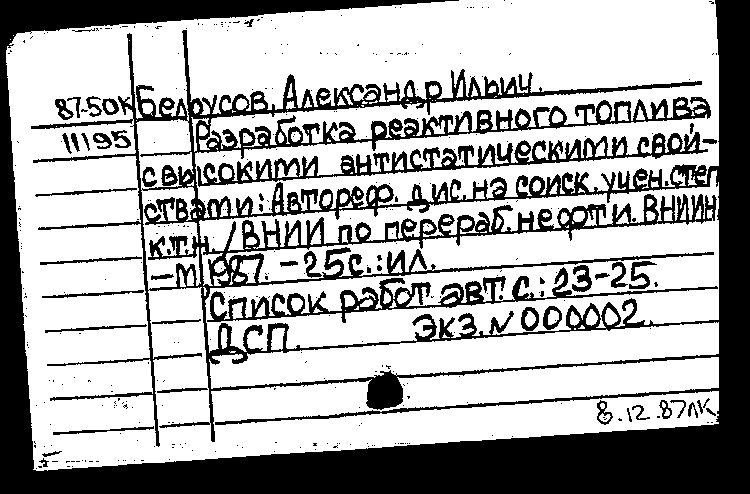 87-50К Белоусов, Александр Ильич.
11195 Разработка реактивного топлива
с высокими антистатическими свой-
ствами: Автореф. дис. на соиск. учен. степ
к.т.н. / ВНИИ по перераб. нефти. ВНИИН
-М 1987. -25с.:ил.
Список работ авт. с.: 23-25.
ДСП. Экз. N 000002.
8.12.87лк